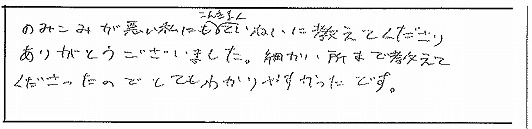 こんきよく
のみこみが悪い私にもていねいに教えてくださり
ありがとうございました。細かい所まで教えて
くださったのでとてもわかりやすかったです。